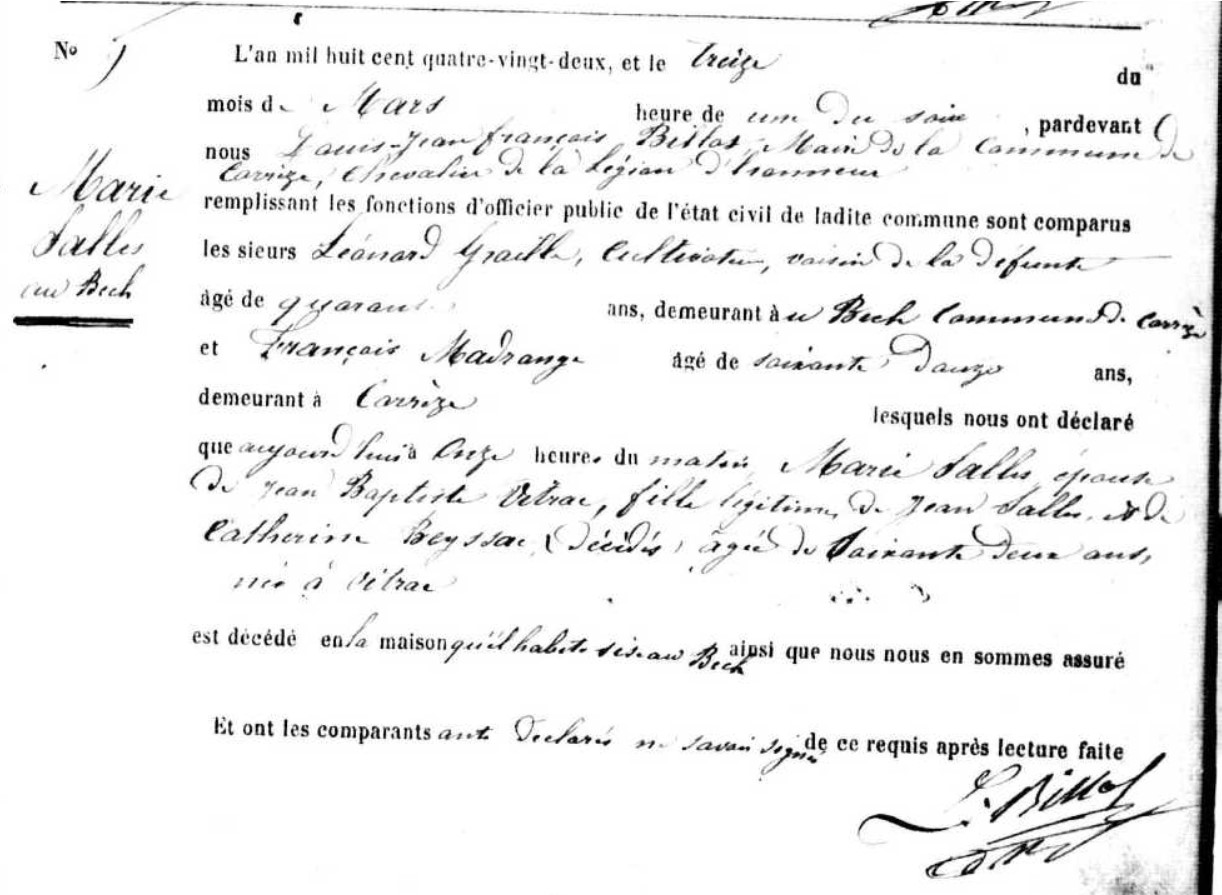 No 5
L'an mil huit cent quatre-vingt-deux, et le treize du
mois de Mars heure de une du soir, pardevant
nous Louis-Jean François Billot, Maire de la Commune de
Corrèze, Chevalier de la Légion d'honneur
Marie
Salles
au Bech
remplissant les fonctions d'officier public de l'état civil de ladite commune sont comparus
les sieurs Léonard Graille, Cultivateur, voisin de la défunte
âgé de quarante ans, demeurant à u Bech Commune de Corrèze
et François Madrange âgé de soixante douze ans,
demeurant à Corrèze lesquels nous ont déclaré
que aujourd'hui à Onze heures du matin, Marie Salles, épouse
de Jean Baptiste Vitrac, fille légitime, de Jean Salles, et de
Catherine Beyssac, (décédés) âgée de soixante deux ans,
née à Vitrac
est décédé en la maison qu'il habite sise au Bech ainsi que nous nous en sommes assuré
Et ont les comparants ont déclarés ne savoir signer de ce requis après lecture faite
L. Billot